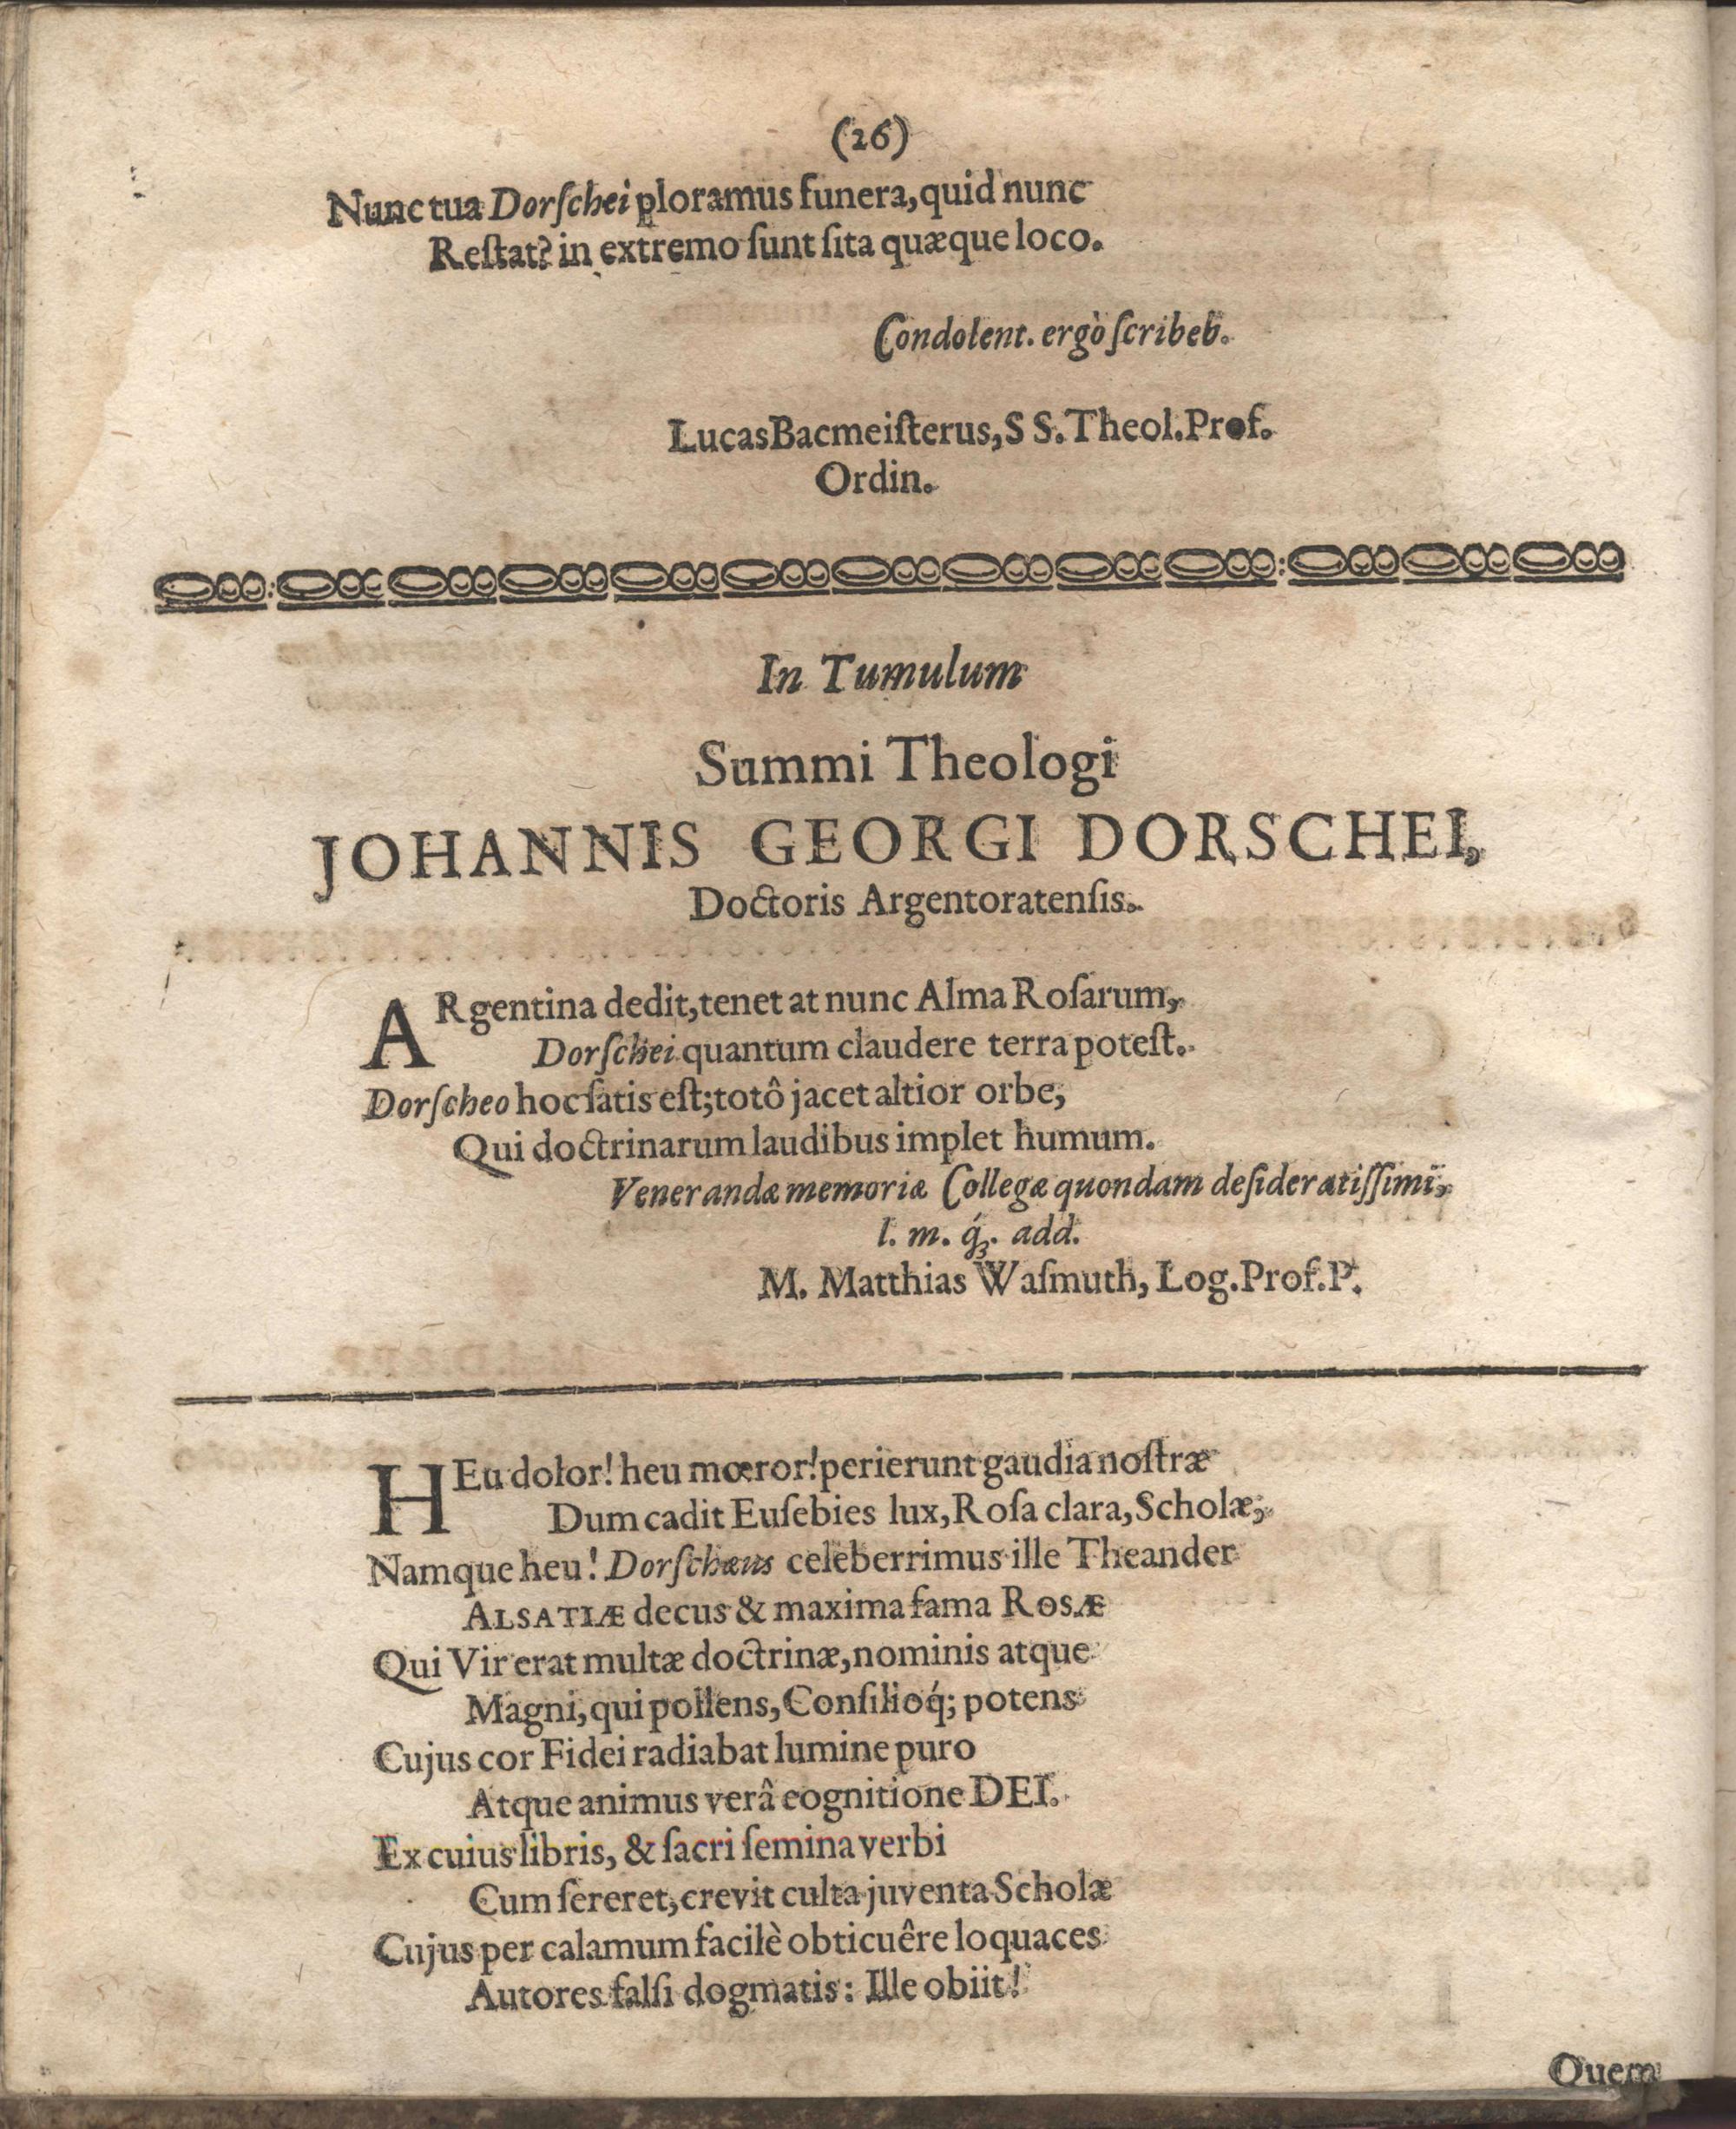 (26)
Nunc tua Dorſchei ploramus funera, quid nunc
Reſtat? in extremo ſunt ſita quæque loco.
Condolent. ergò ſcribeb.
Lucas Bacmeiſterus, S S. Theol. Prof.
Ordin.
In Tumulum
Summi Theologi
JOHANNIS GEORGI DORSCHEI,
Doctoris Argentoratenſis.
ARgentina dedit, tenet at nunc Alma Roſarum,
Dorſchei quantum claudere terra poteſt.
Dorſcheo hoc ſatis eſt; totô jacet altior orbe,
Qui doctrinarum laudibus implet humum.
Venerandæ memoriæ Collegæ quondam deſideratiſſimi,
l. m. q́;. add.
M. Matthias Waſmuth, Log. Prof. P.
HEu dolor! heu mœror! perierunt gaudia noſtræ
Dum cadit Euſebies lux, Roſa clara, Scholæ,
Namque heu! Dorſchæus celeberrimus ille Theander
ALSATIÆ decus & maxima fama ROSÆ
Qui Vir erat multæ doctrinæ, nominis atque
Magni, qui pollens, Conſilioq́; potens
Cujus cor Fidei radiabat lumine puro
Atque animus verâ cognitione DEI.
Ex cuius libris, & ſacri ſemina verbi
Cum ſereret, crevit culta juventa Scholæ
Cujus per calamum facilè obticuêre loquaces
Autores falſi dogmatis: Ille obiit!
Quem